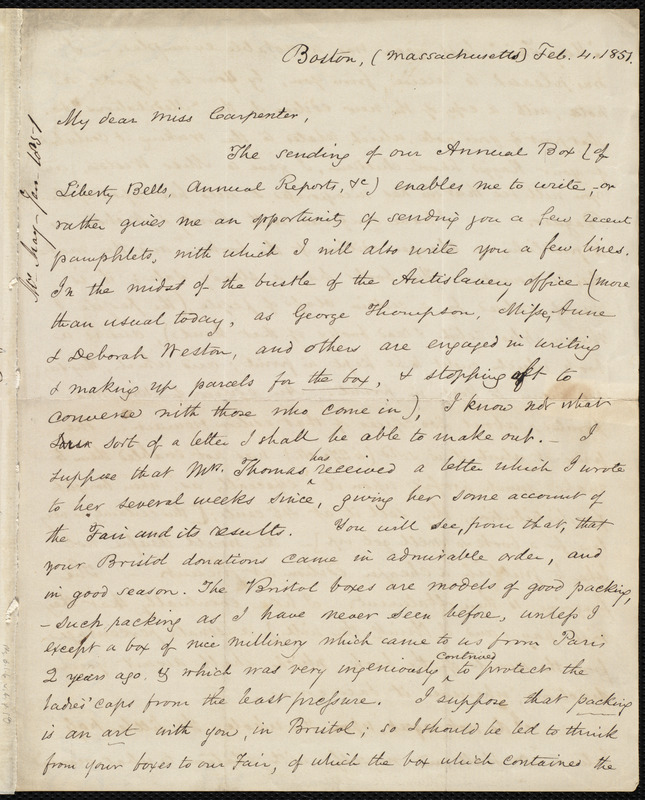 Boston, (Massachusetts) Feb. 4. 1851.
My dear Miss Carpenter,
The sending of our Annual Box (of
Liberty Bells, Annual Reports, &c) enables me to write, or
rather gives me an opportunity of sending you a few recent
pamphlets, with which I will also write you a few lines.
In the midst of the bustle of the Antislavery office (more
than usual today, as George Thompson, Misses Anne
& Deborah Weston, and others are engaged in writing
& making up parcels for the box, & stopping oft to
converse with those who come in), I know not what
sort of a letter I shall be able to make out. – I
suppose that Mrs. Thomas has received a letter which I wrote
to her several weeks since, giving her some account of
the Fair and its results. You will see, from that, that
your Bristol donations came in admirable order, and
in good season. The Bristol boxes are models of good packing,
– such packing as I have never seen before, unless I
except a box of nice millinery which came to us from Paris
2 years ago. & which was very ingeniously contrived to protect the
ladies' caps from the least pressure. I suppose that packing
is an art with you, in Bristol; so I should be led to think
from your boxes to our Fair, of which the box which contained the
Mr. May – Jan 1851